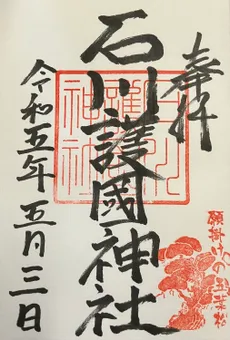 奉拝
石川護國神社
令和五年五月三日
願掛けの五葉松